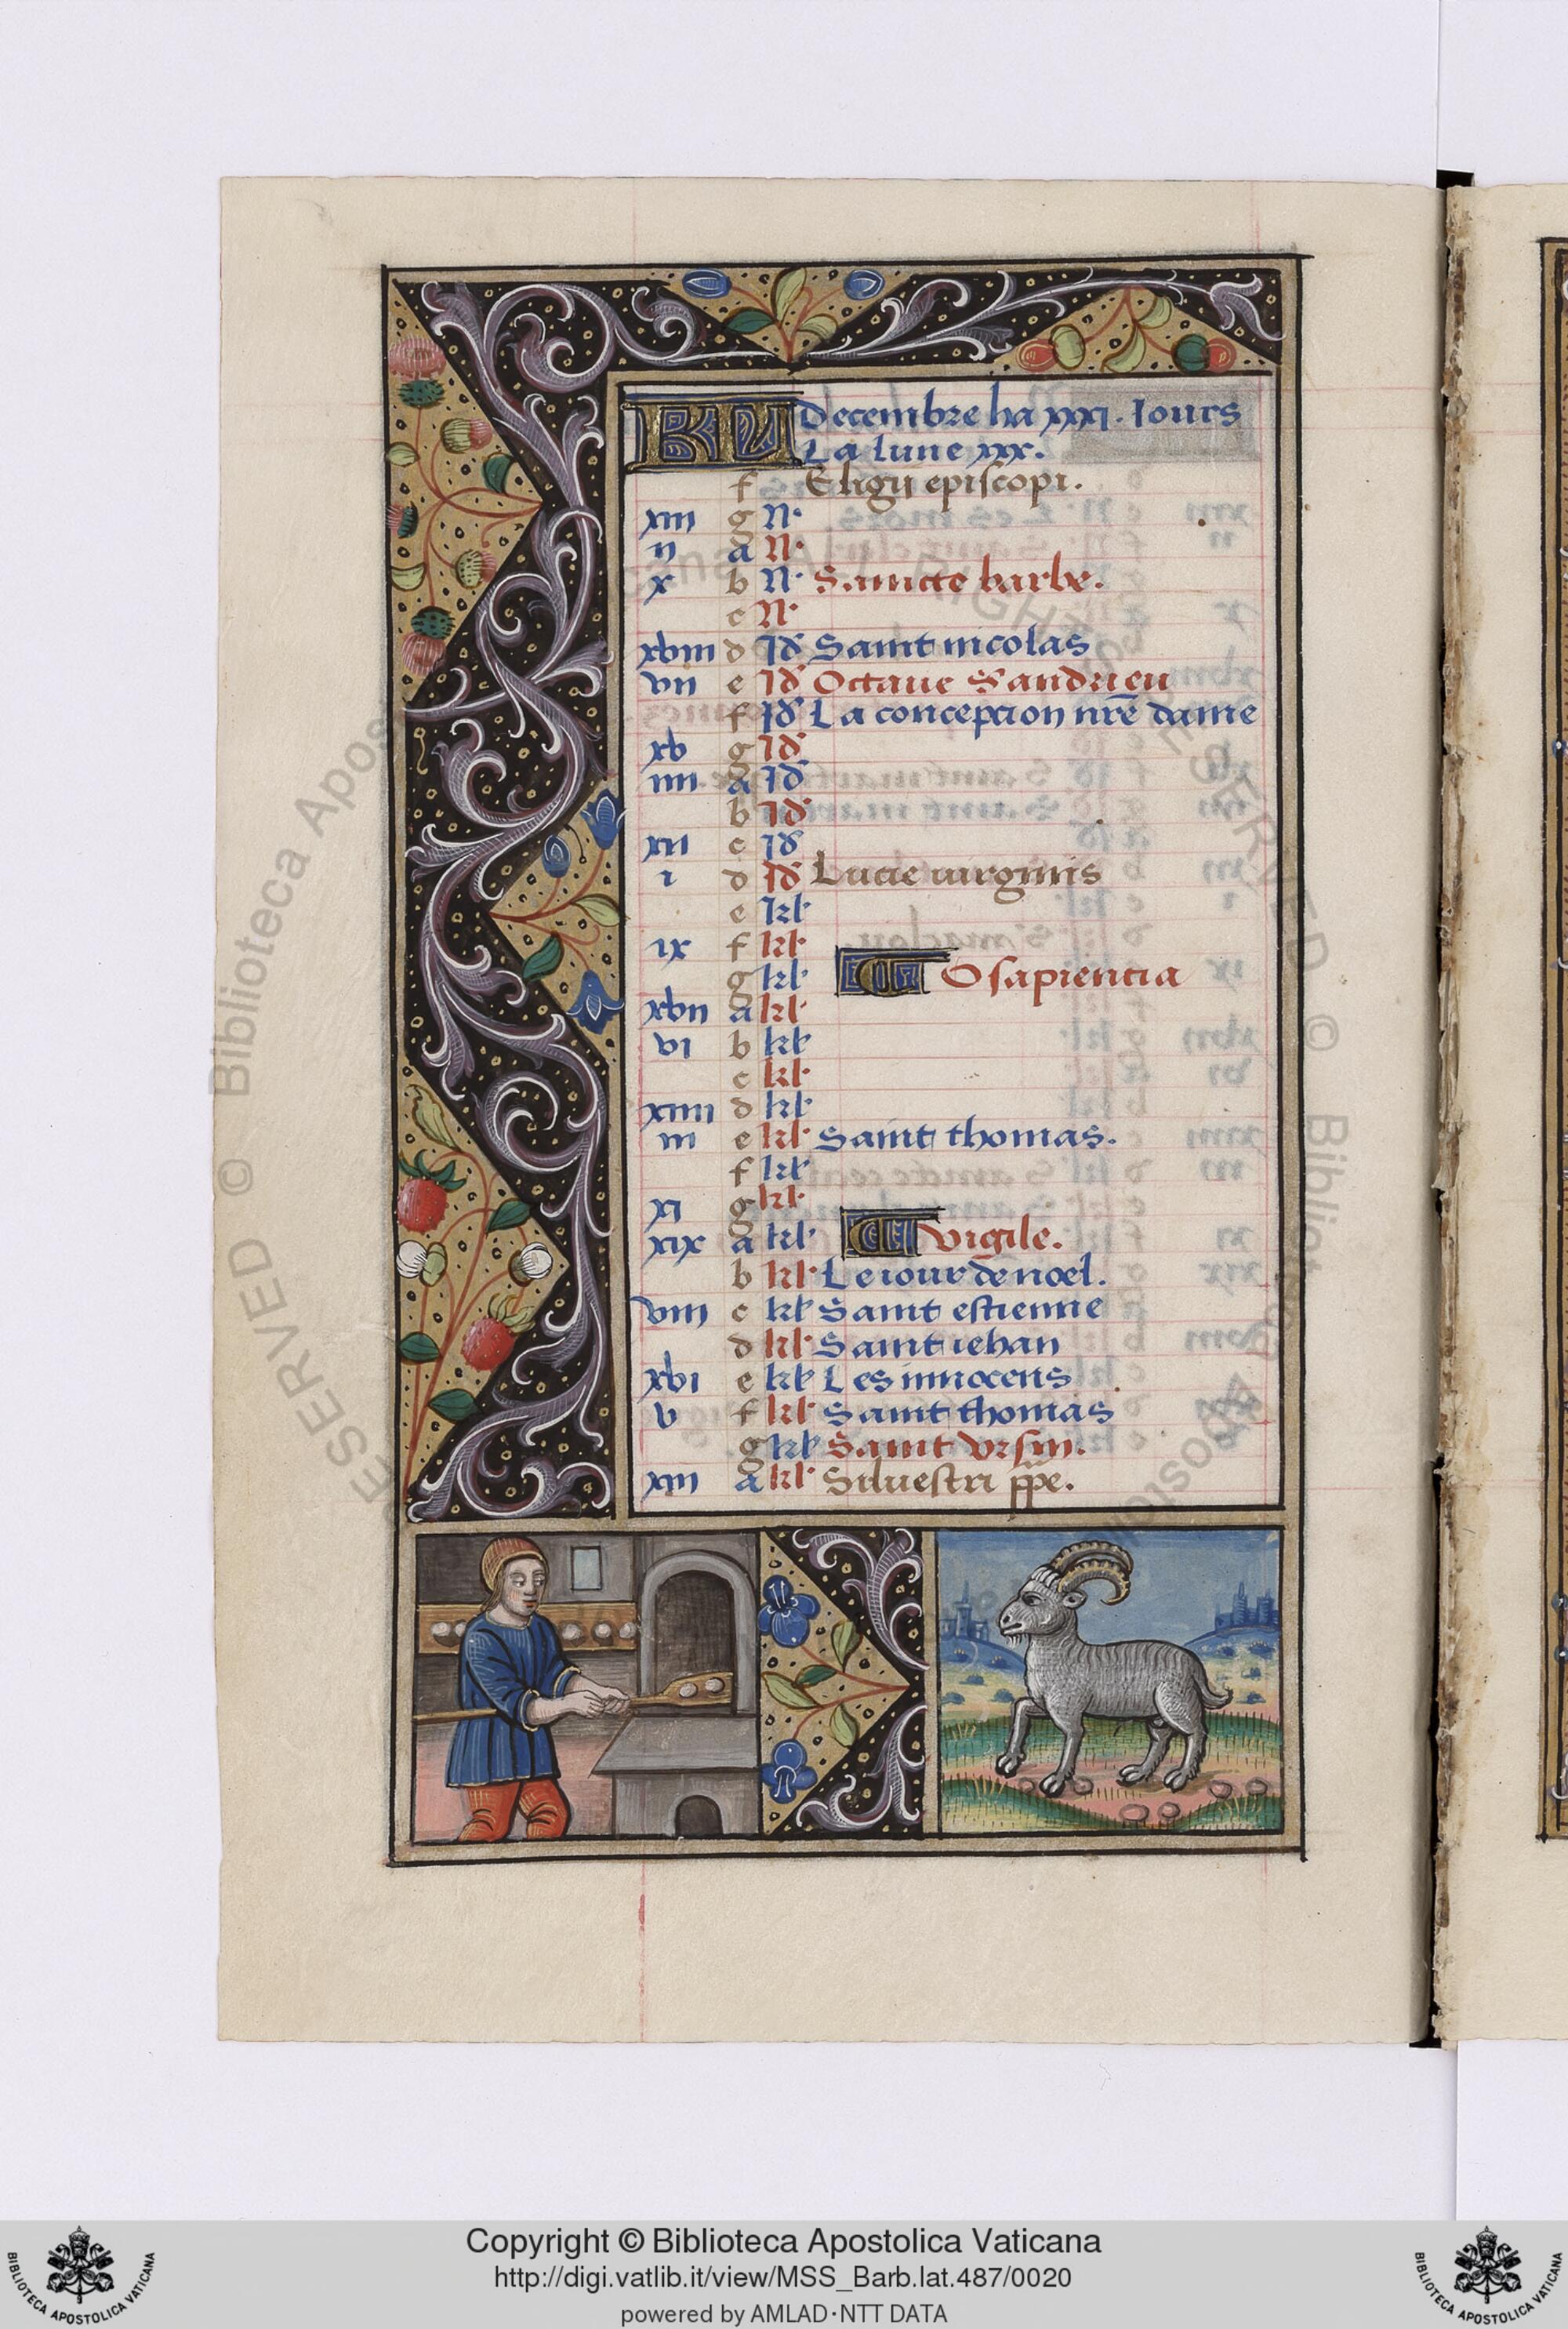 KL Decembre ha xxxi. Iours
La lune xxx.
f Eligii episcopi.
xiii g N.
ii a N.
x b N. Saincte barbe.
c N.
xviii d Id Saint nicolas
vii e Id Octave S andrieu
f Id La concepcion nr̃e dame
xv g Id
iiii a Id
b Id
xii c Id
i d Id Lucie virginis
e kl
ix f kl
g kl O sapientia
xvii a kl
vi b kl
c kl
xiiii d kl
iii e kl Saint thomas.
f kl
xi g kl
xix a kl vigile.
b kl Le iour de noel.
viii c kl Saint estienne
d kl Saint iehan
xvi e kl Les innocens
v f kl Saint thomas
g kl Saint Ursin.
xiii a kl Silvestri pp̃e.
Copyright © Biblioteca Apostolica Vaticana
http://digi.vatlib.it/view/MSS_Barb.lat.487/0020
powered by AMLAD·NTT DATA
BIBLIOTECA APOSTOLICA VATICANA
BIBLIOTECA APOSTOLICA VATICANA